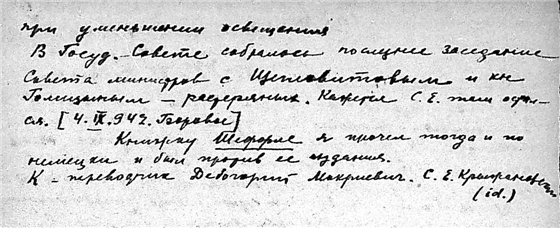 при уменьшении освещения
В Госуд. Совете собралось последнее заседание
Совета министров с Щегловитовым и кн
Голицыным – растерянных. Кажется С. Е. там
ся. [4.IX.942. Боровое]
Книжку Шеферле я прочел тогда и по
немецки и был против ее издания.
К – переводчик Дебогорий Мокриевич. С. Е. Крыжановский
(id.)